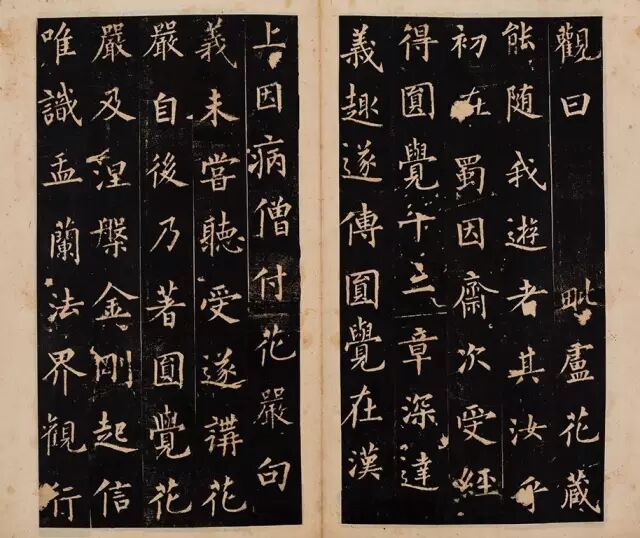 觀曰　毗盧花藏
能随我遊者其汝乎
初在蜀因齋次受經
得圓覺十三章深達
義趣遂傳圓覺在漢
上因病僧付花嚴句
義未嘗聽受遂講花
嚴自後乃著圓覺花
嚴及涅槃金剛起信
唯識盂蘭法界觀行